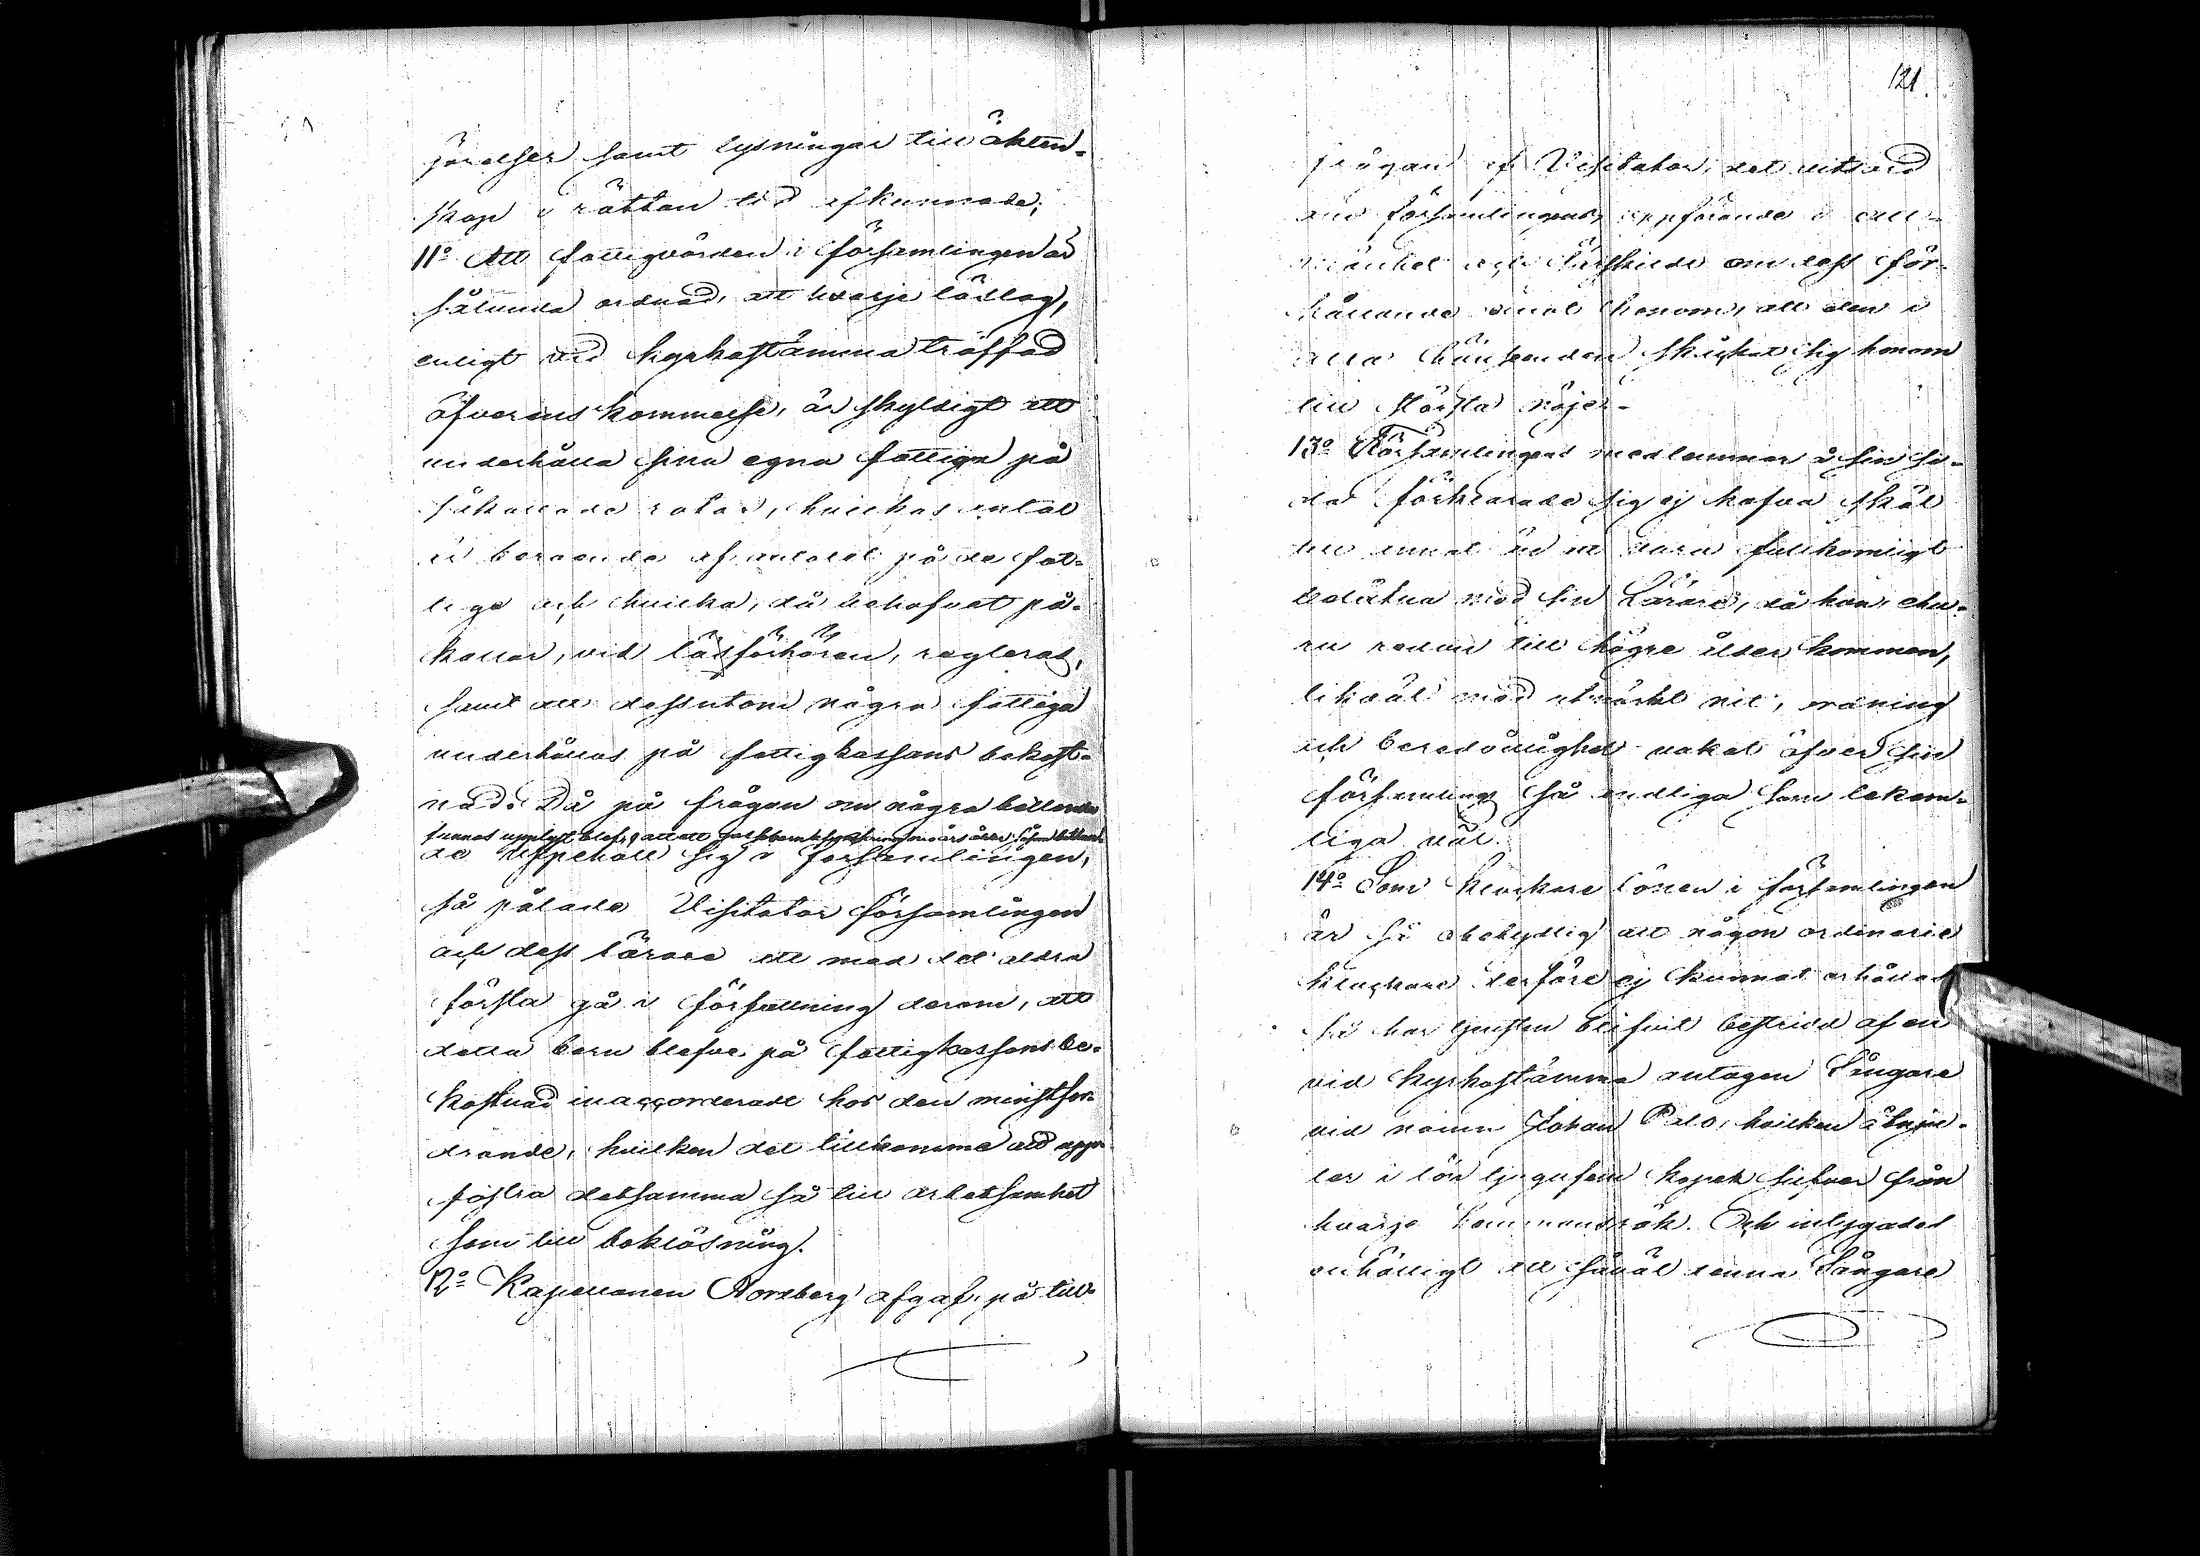 jorelser samt lysningar till äkten-
skap i rättan tid afkunnade;
11o Att fattigvården i församlingen är
sålunda ordnad, att hvarje läslag,
enligt vid kyrkostämma träffad
öfverenskommelse, är skyldigt att
underhålla sina egna fattiga på
såkallade rotar, hvilkas antal
är beroende af antalet på de fat-
tige och hvilka, då behofvet på-
kallar, vid läsförhören, regleras,
samt att dessutom några fattiga
underhållas på fattigkassans bekost-
nad. Då på frågan om några bettlande
funnes upplyst blef, att ett barn såsom bettlan-
de uppehåll sig i församlingen,
så pålade Visitator församlingen
och dess lärare att med det aldra
första gå i författning derom, att
detta barn blefve på fattigkassans be-
kostnad inaccorderadt hos den minstfor-
drande, hvilken det tillkomme att upp-
fostra detsamma så till arbetsamhet
som till bokläsning.
12o Kapellanen Norrberg afgaf, på till-
121.
frågan af Visitator, det vitsord
om församlingens uppförande i all-
mänhet och särskildt om dess för-
hållande emot honom, att den i
alla hänseenden skickat sig honom
till största nöje.-
13o Församlingens medlemmar å sin si-
da förklarade sig ej hafva skäl
till annat än att vara fullkomligt
belåtna med sin Lärare, då han, ehu-
ru redan till högre ålder kommen,
likväl med utmärkt nit, ordning
och beredvillighet vakat öfver sin
församlings så andliga som lekam-
liga väl.
14o Som klockare lönen i församlingen
är så obetydlig att någon ordinarie
klockare derföre ej kunnat erhållas
så har tjensten blifvit bestridd af en
vid kyrkostämma antagen Sångare
vid namn Johan Palo, hvilken åtnju-
ter i lön tjugufem kopek silfver från
hvarje rök. Och intygades
enhälligt att såväl denna Sångare